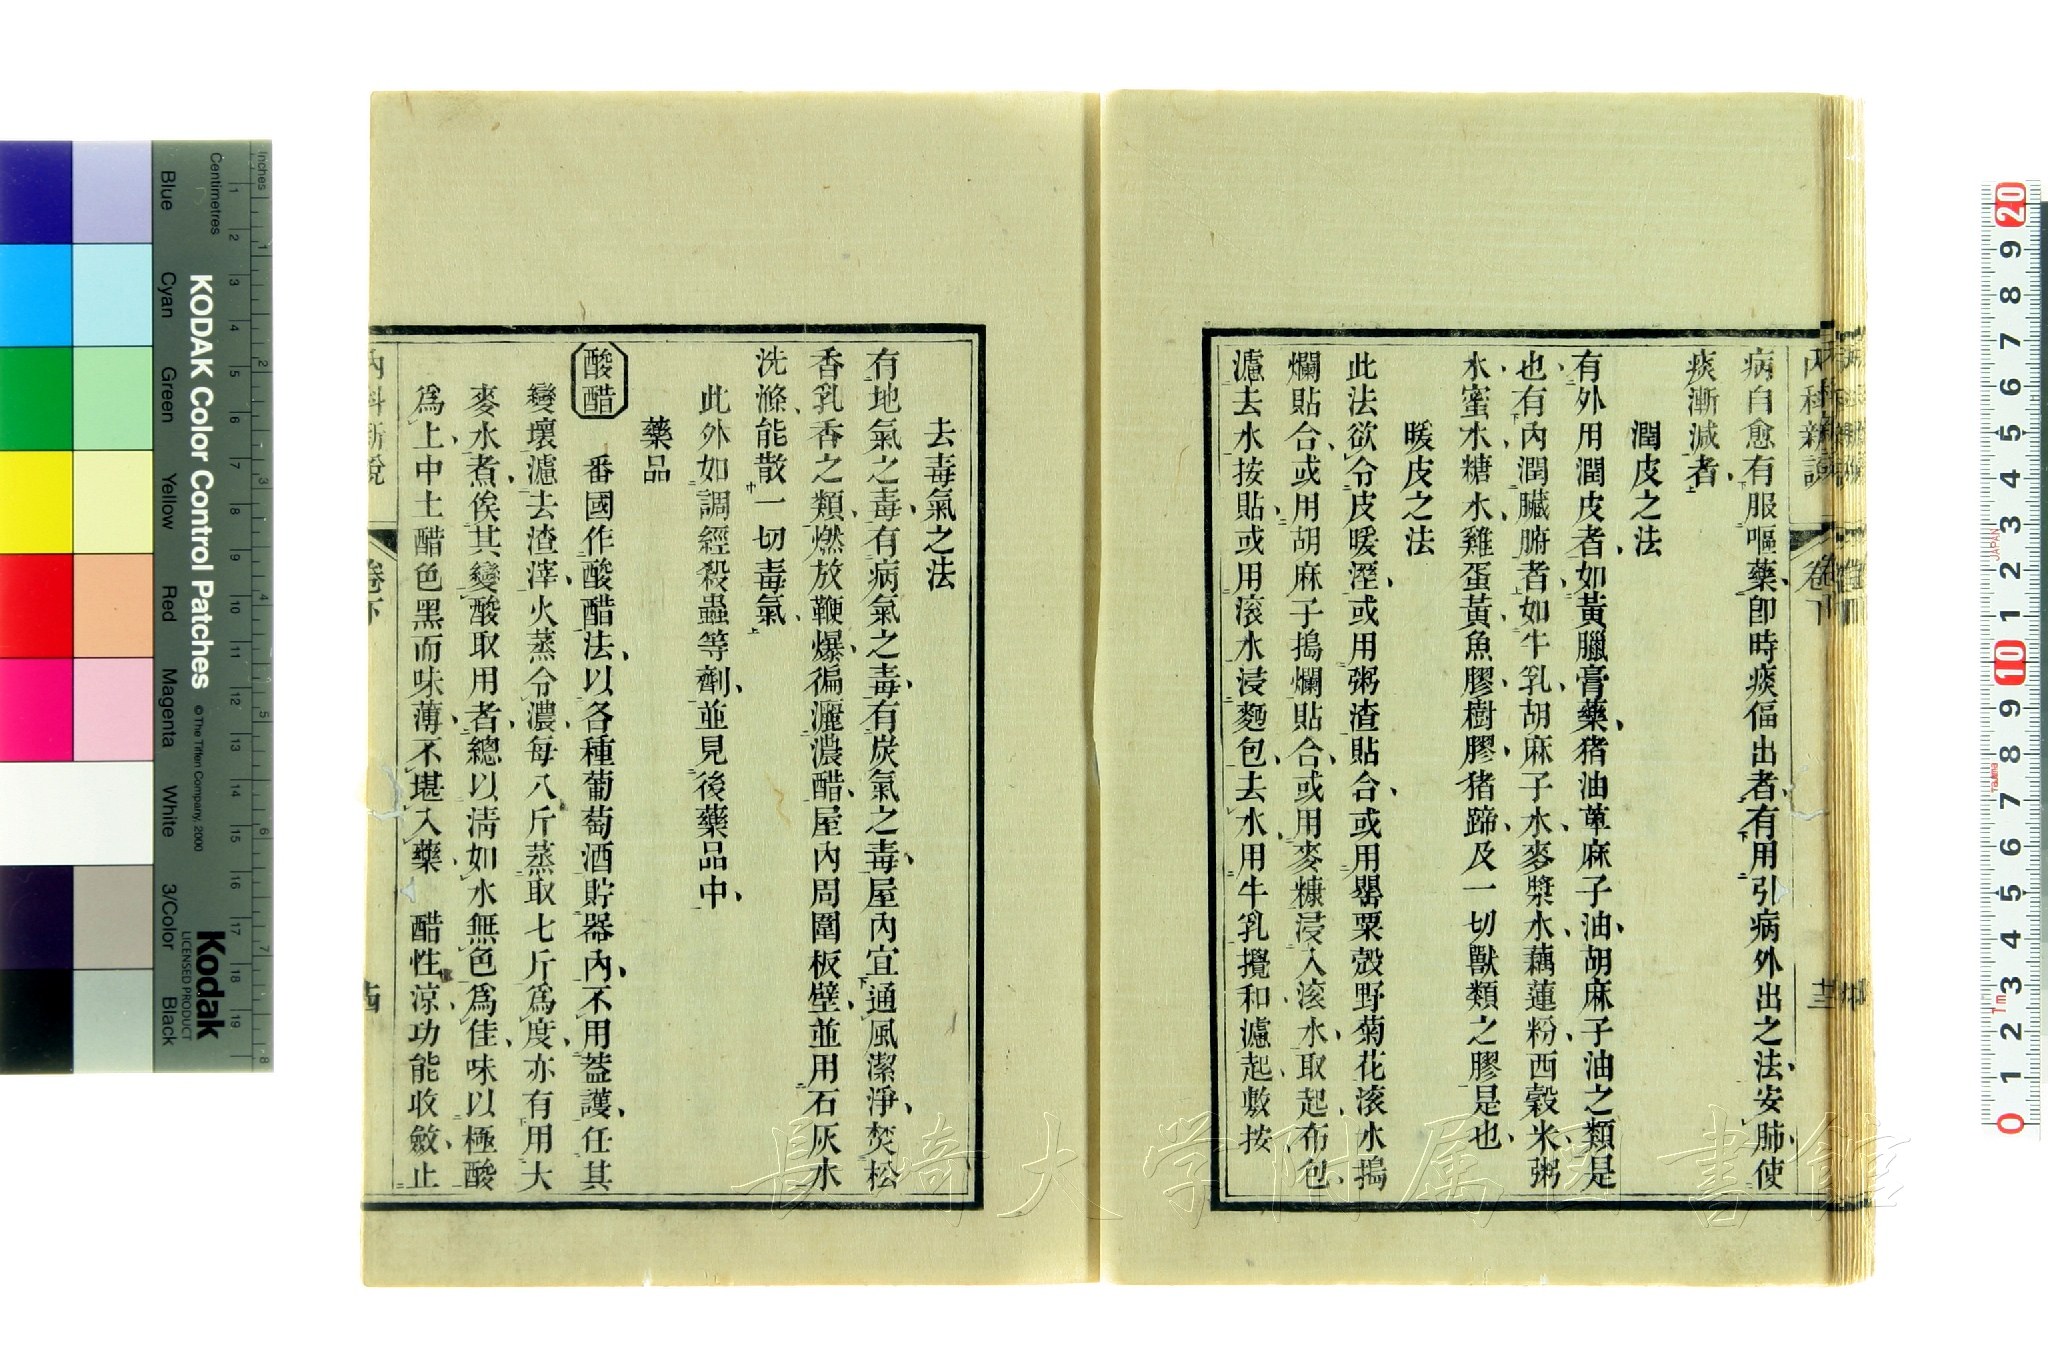 內科新說
卷下
病自愈有服嘔藥、卽時痰偪出者、有用引病外出之法、安肺使
痰漸減者、
潤皮之法
有外用潤皮者、如黃臘膏藥、猪油萆麻子油、胡麻子油之類是
也、有內潤臟腑者、如牛乳、胡麻子水、麥漿水、藕蓮粉、西穀米粥
水、蜜水、糖水、雞蛋黃、魚膠、樹膠、猪蹄、及一切獸類之膠是也、
暖皮之法
此法欲令皮暖溼、或用粥渣貼合、或用罌粟殼野菊花滚水搗
爛貼合、或用胡麻子搗爛貼合、或用麥糠浸入滚水、取起、布包、
濾去水按貼、或用滚水浸麵包、去水、用牛乳攪和濾起、敷按、
去毒氣之法
有地氣之毒、有病氣之毒、有炭氣之毒、屋內宜通風潔淨、焚松
香乳香之類、燃放鞭爆、徧灑濃醋、屋內周圍板壁、並用石灰水
洗滌、能散一切毒氣、
此外如調經殺蟲等劑、並見後藥品中、
藥品
酸醋　番國作酸醋法、以各種葡萄酒貯器內、不用葢護、任其
變壞濾去渣滓、火蒸令濃、每八斤蒸取七斤爲度、亦有用大
麥水煮、俟其變酸取用者、總以淸如水、無色爲佳、味以極酸
爲上、中土醋色黑而味薄、不堪入藥　醋性涼、功能收斂、止
內科新說
卷下
KODAK Color Control Patches
© The Tiffen Company, 2000
Kodak
LICENSED PRODUCT
Inches
Centimetres
Blue
Cyan
Green
Yellow
Red
Magenta
White
3/Color
Black
1 2 3 4 5 6 7 8 9 10 11 12 13 14 15 16 17 18 19
1 2 3 4 5 6 7 8
20 9 8 7 6 5 4 3 2 1 10 9 8 7 6 5 4 3 2 1 0
JAPAN
長崎大学附属図書館